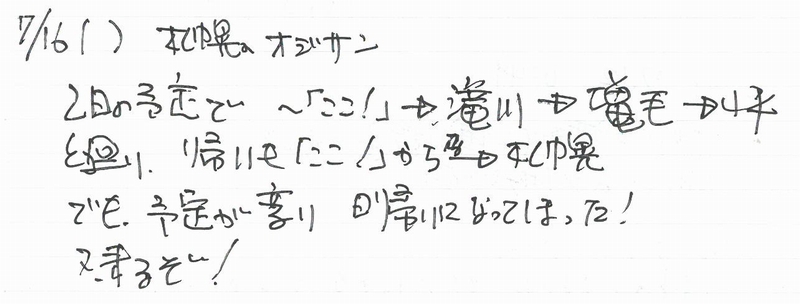 7/16( ) 札幌のオジサン
2日の予定で ~「ここ!」→滝川→増毛→小平
を廻り、帰りも「ここ!」から→札幌
でも、予定が変り 日帰りになってしまった!
又来るぞい!